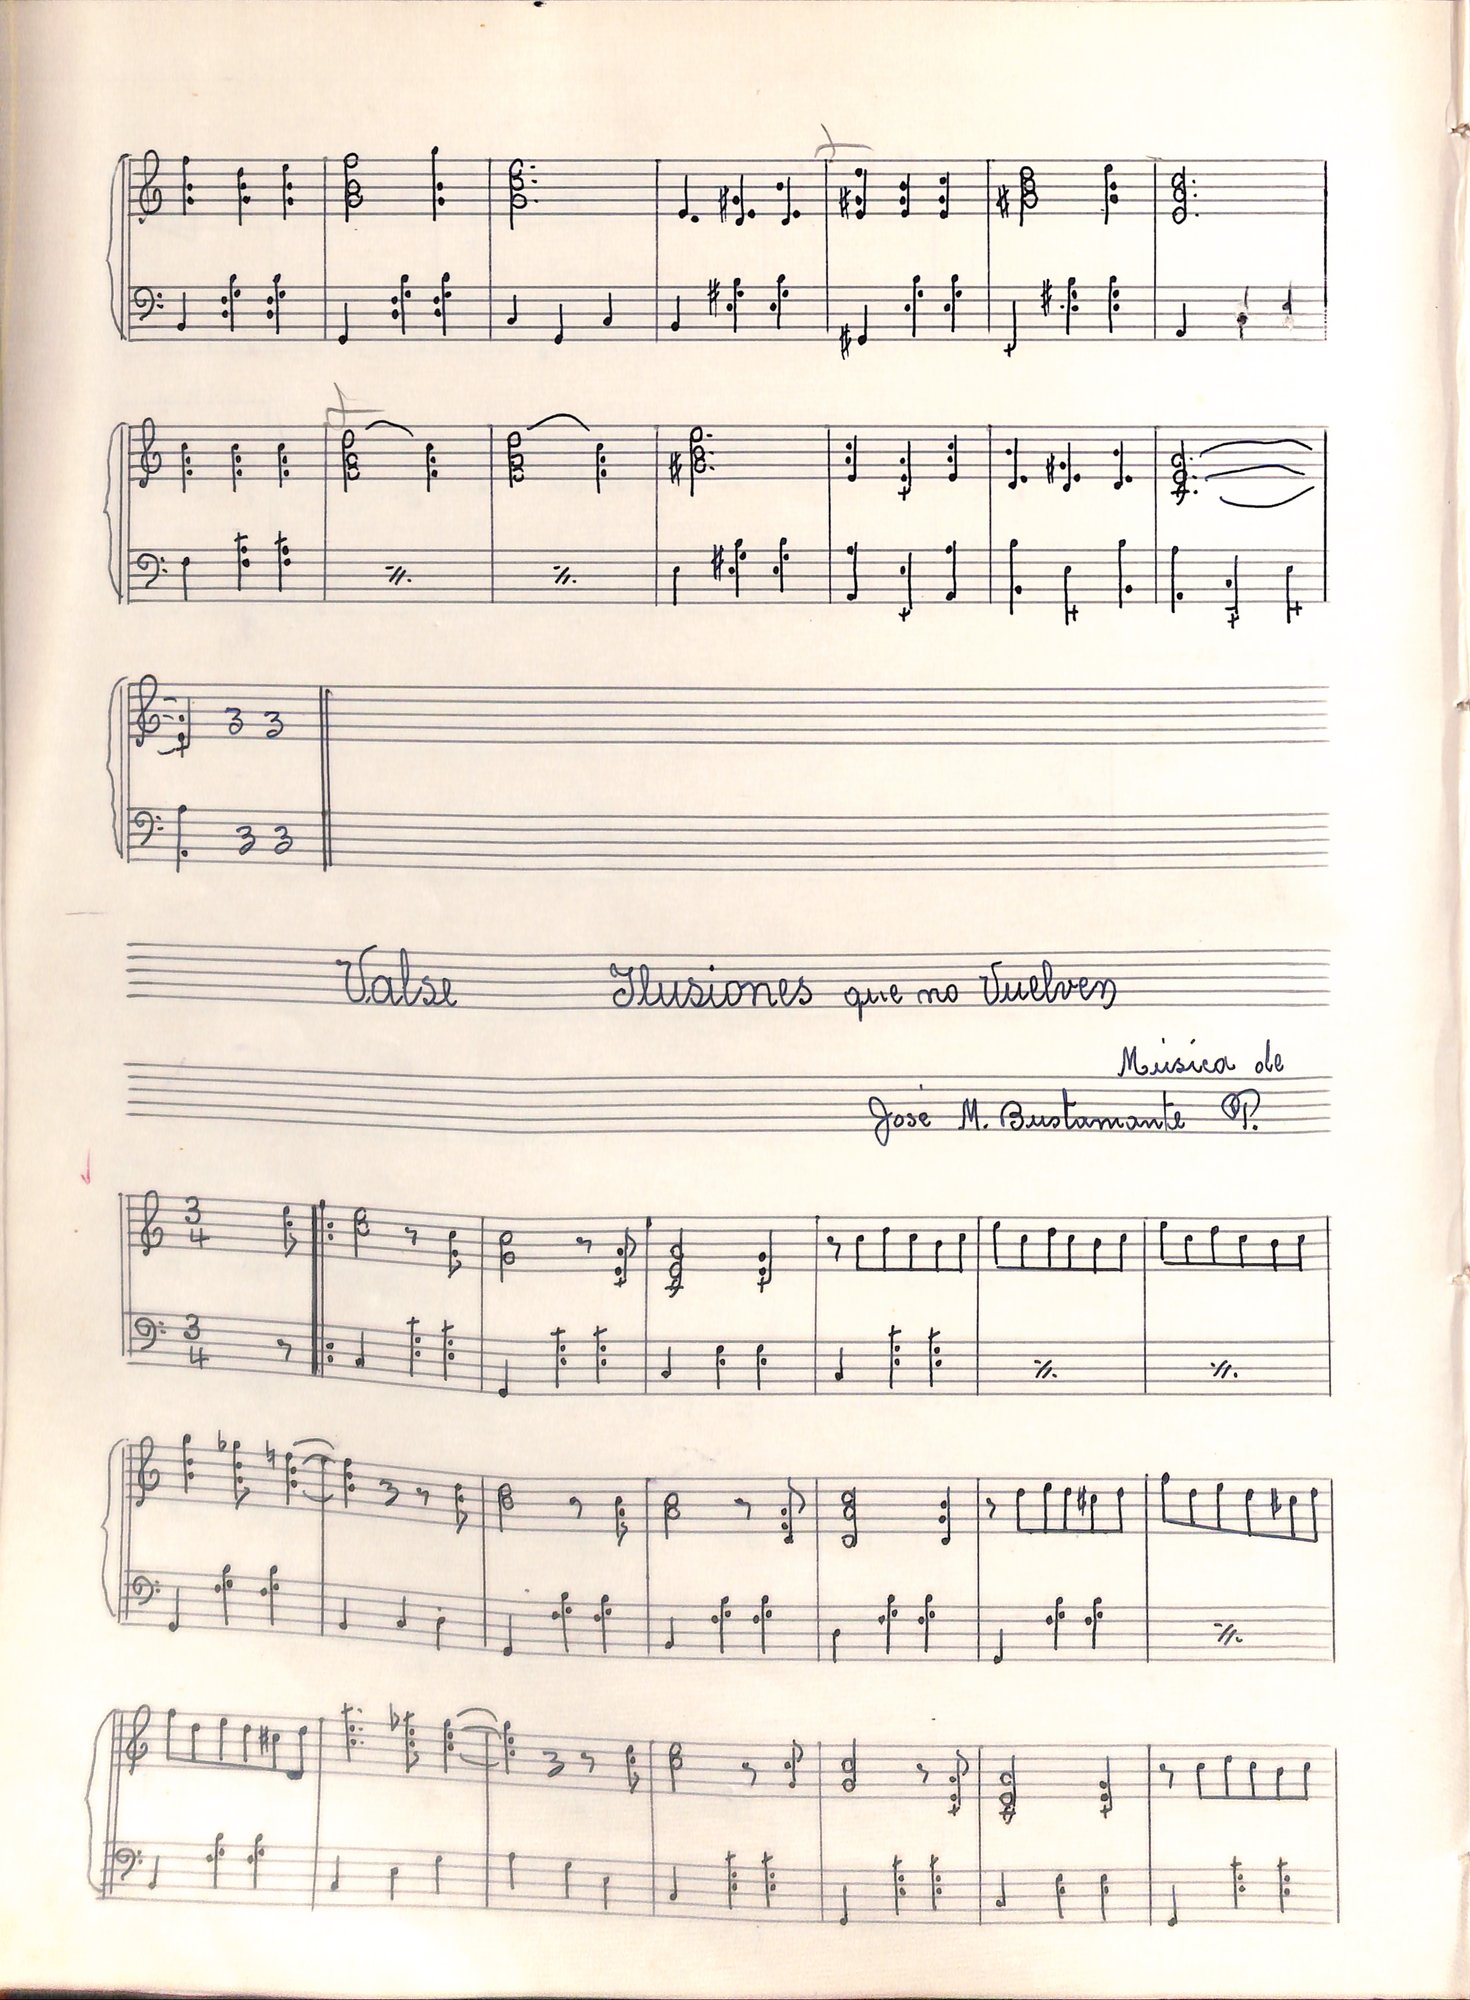 Valse Ilusiones que no Vuelven
Música de
José M. Bustamante P.
3
4
3
4